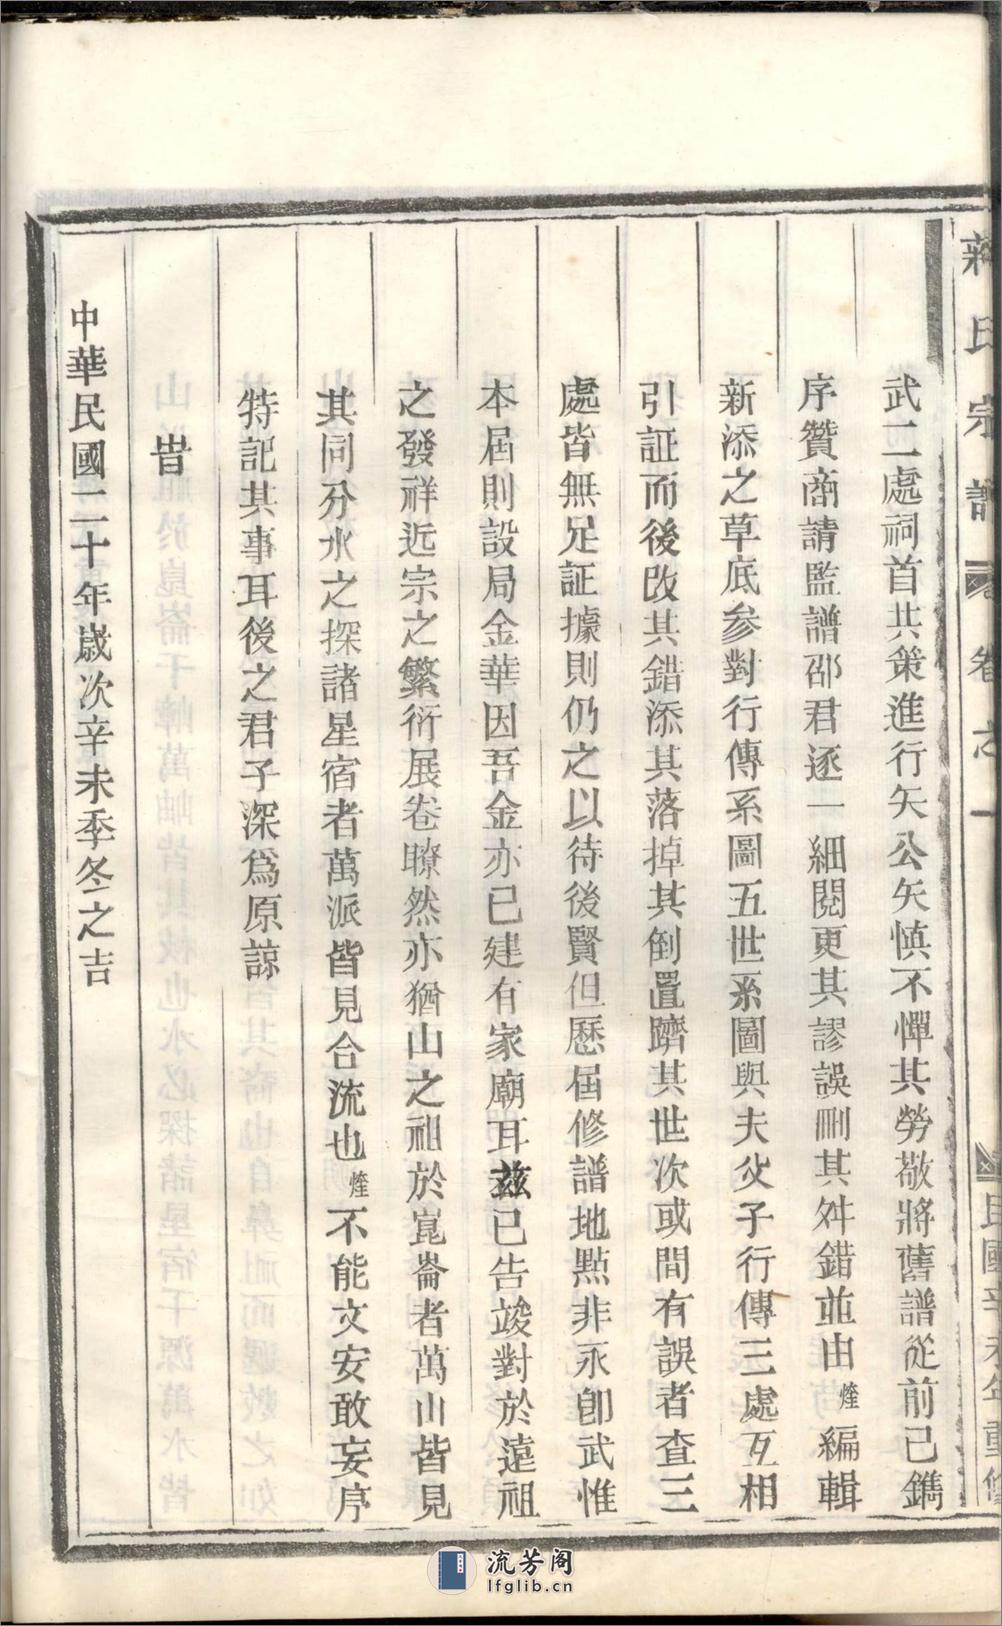 蔣氏宗譜 卷之一 民國辛未年重修
武二處祠首共策進行矢公矢慎不憚其勞敬將舊譜從前已鐫
序贊商請監譜邵君逐一細閱更其謬誤刪其舛錯並由煃編輯
新添之草底參對行傳系圖五世系圖與夫父子行傳三處互相
引証而後改其錯添其落掉其倒置躋其世次或間有誤者查三
處皆無足証據則仍之以待後賢但歷屆修譜地點非永卽武惟
本屆則設局金華因吾金亦已建有家廟耳茲已告竣對於遠祖
之發祥近宗之繁衍展卷瞭然亦猶山之祖於崑崙者萬山皆見
其同分水之探諸星宿者萬派皆見合流也煃不能文安敢妄序
特記其事耳後之君子深爲原諒
旹
中華民國二十年歲次辛未季冬之吉
流芳阁
lfglib.cn